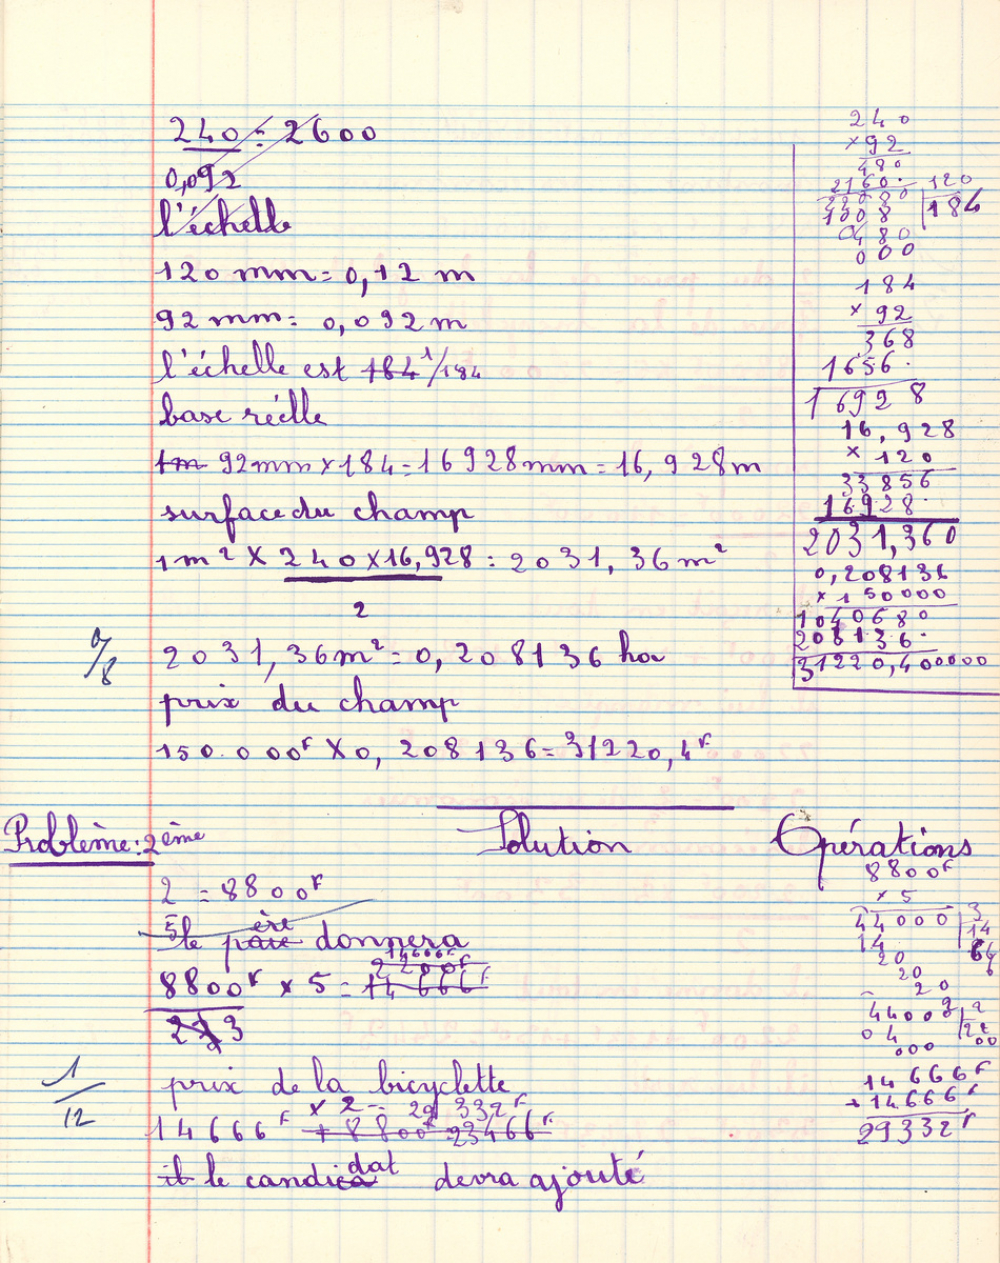 240 = 2600
0,092
l'échelle
120 mm = 0,12 m
92 mm = 0,092 m
l'échelle est 184 1/184
base réelle
1m 92mm x 184 = 16928mm = 16,928m
surface du champ
1m² X 240 x 16,928 = 2031,36m²
2
0/8
2031,36m² = 0,208136 ha
prix du champ
150.000F X 0,208136 = 31220,4F
240
x 92
480
2160.
22080 120
1008 184
0480
000
184
x 92
368
1656.
16928
16,928
x 120
33856
16928.
2031,360
0,208136
x 150000
1040680
208136.
31220,400000
Problème: 2ème Solution Opérations
2 = 8800F
5
le père donnera
14666F
2200F
8800F x 5 = 14 666F
3
1/12
prix de la bicyclette
x 2 = 29 332F
14666F + 8800F 23466F
il le candidat devra ajouté
8800F
x 5
44000 3
14 14
20 66
20
20
44000 2
04 22
000 00
14666F
+ 14666F
29332F